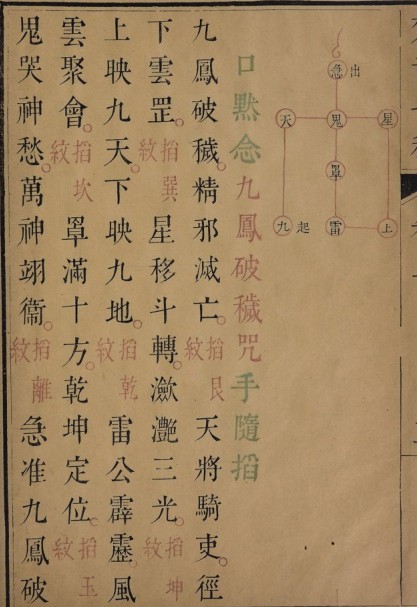 急 出
天 鬼 星
罩
九 起 雷 上
口黙念九鳳破穢咒手隨掐
九鳳破穢。精邪滅亡。掐艮紋 天將騎吏。徑
下雲罡。掐巽紋 星移斗轉。瀲灧三光。掐坤紋
上映九天。下映九地。掐乾紋 雷公霹靂。風
雲聚會。掐坎紋 罩滿十方。乾坤定位。掐玉紋
鬼哭神愁。萬神翊衞。掐離紋 急准九鳳破